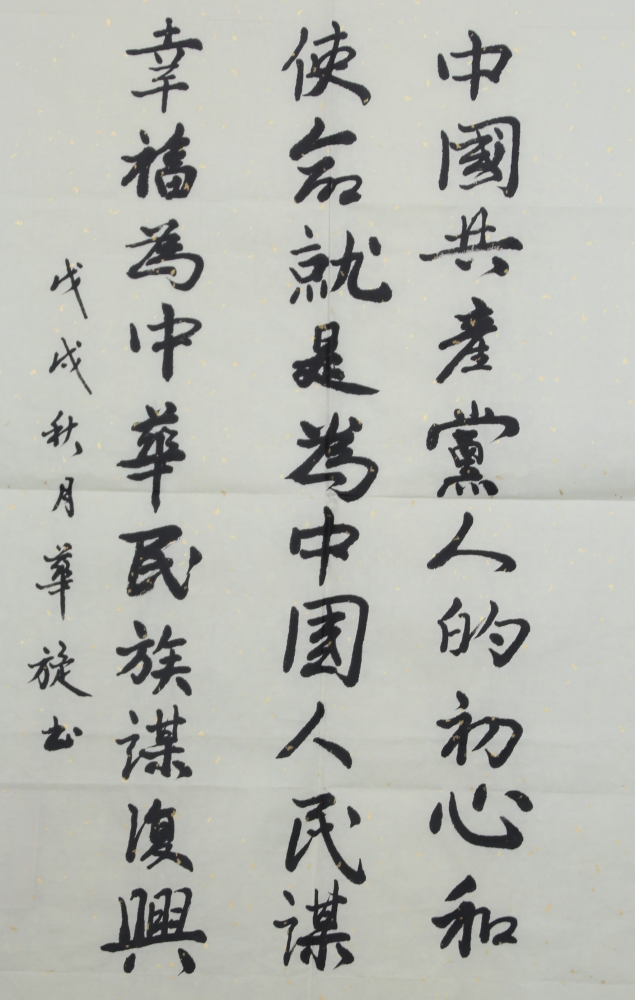 中國共產黨人的初心和
使命就是為中国人民謀
幸福為中華民族謀復興
戊戌秋月華旋书